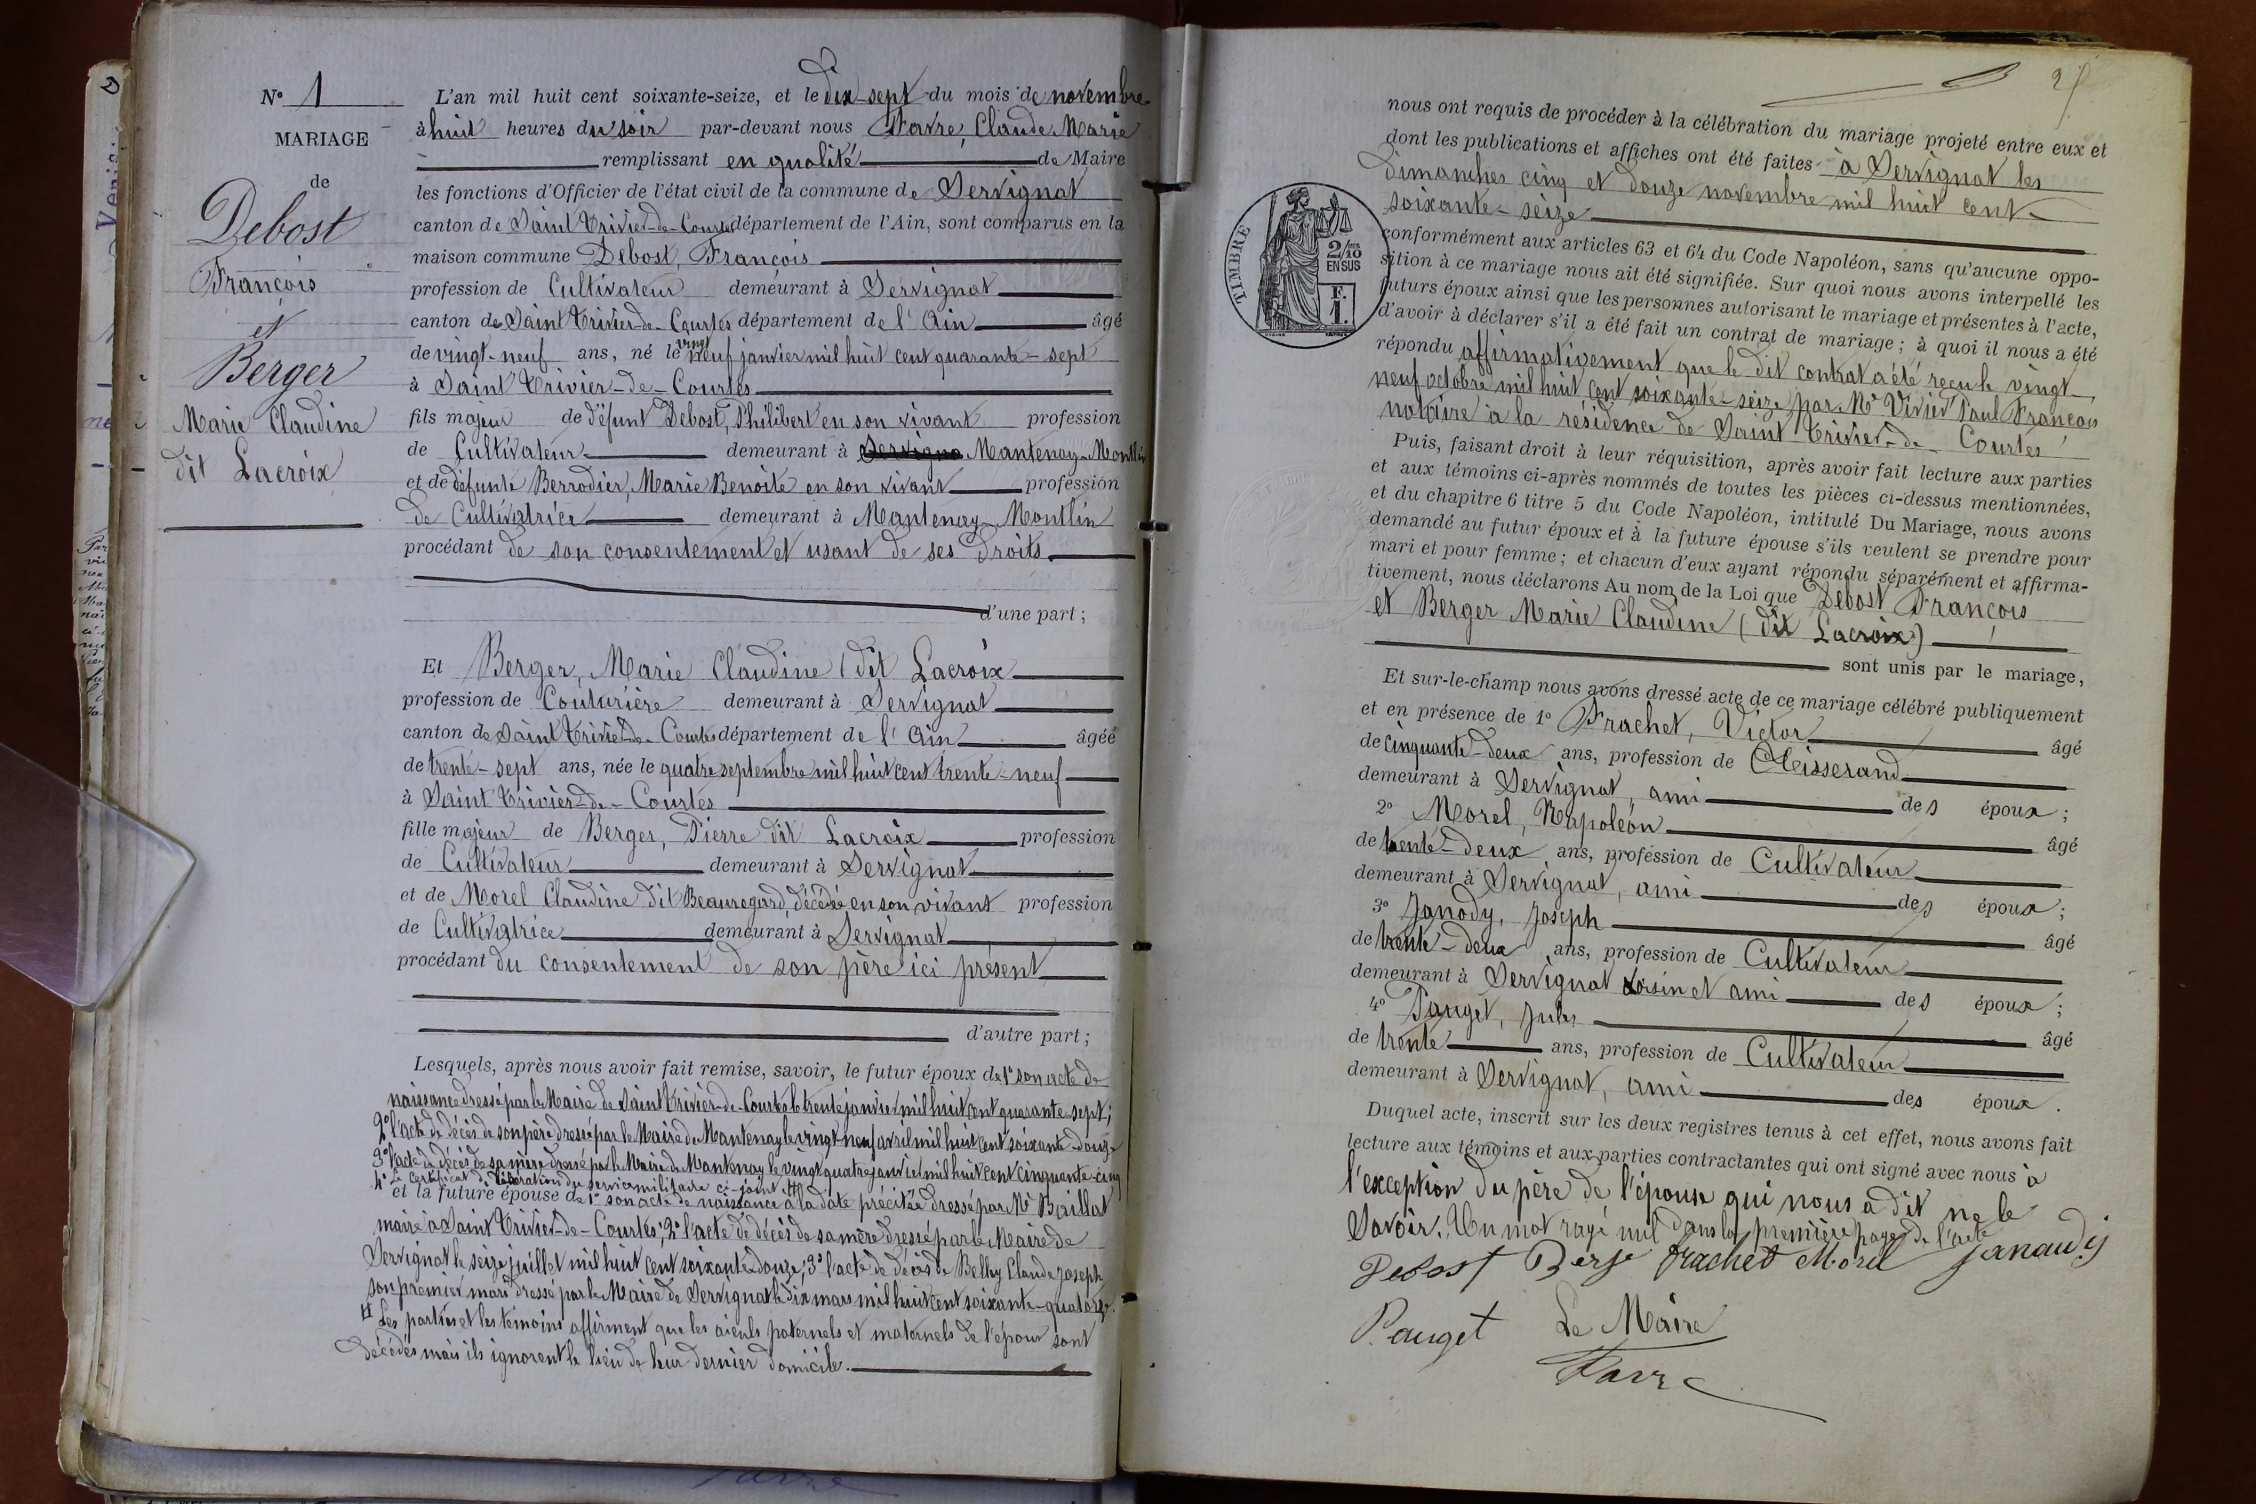 N° 1
MARIAGE
de
Debost
François
et
Berger
Marie Claudine
dit Lacroix
L'an mil huit cent soixante-seize, et le dix-sept du mois de novembre
à huit heures du soir par-devant nous Favre, Claude Marie
remplissant en qualité de Maire
les fonctions d'Officier de l'état civil de la commune de Servignat
canton de Saint Trivier-de-Courtes département de l'Ain, sont comparus en la
maison commune Debost, François
profession de Cultivateur demeurant à Servignat
canton de Saint Trivier-de-Courtes département de l'Ain âgé
de vingt-neuf ans, né le vingt neuf janvier mil huit cent quarante-sept
à Saint Trivier-de-Courtes
fils majeur de défunt Debost, Philibert en son vivant profession
de Cultivateur demeurant à Servigna Mantenay-Montlin
et de défunte Berrodier, Marie Benoite en son vivant profession
de Cultivatrice demeurant à Mantenay-Montlin
procédant de son consentement et usant de ses droits
d'une part ;
Et Berger, Marie Claudine (dit Lacroix
profession de Couturière demeurant à Servignat
canton de Saint Trivier-de-Courtes département de l'Ain âgée
de trente-sept ans, née le quatre septembre mil huit cent trente-neuf
à Saint Trivier-de-Courtes
fille majeur de Berger, Pierre dit Lacroix profession
de Cultivateur demeurant à Servignat
et de Morel Claudine dit Beauregard, décédée en son vivant profession
de Cultivatrice demeurant à Servignat
procédant du consentement de son père ici présent
d'autre part ;
Lesquels, après nous avoir fait remise, savoir, le futur époux de 1° son acte de
naissance dressé par le Maire de Saint Trivier-de-Courtes le trente janvier mil huit cent quarante-sept ;
2° l'acte de décès de son père dressé par le Maire de Mantenay le vingt neuf avril mil huit cent soixante-douze
3° l'acte de décès de sa mère dressé par le Maire de Mantenay le vingt quatre janvier mil huit cent cinquante-cinq
4° Le certificat de libération du service militaire ci-joint #
et la future épouse de 1° son acte de naissance à la date précitée dressé par Mr Baillat
maire à Saint Trivier-de-Courtes ; 2° l'acte de décès de sa mère dressé par le Maire de
Servignat le seize juillet mil huit cent soixante douze ; 3° l'acte de décès de Belley Claude Joseph
son premier mari dressé par le Maire de Servignat le dix mars mil huit cent soixante-quatorze.
# Les parties et les témoins affirment que les aïeuls paternels et maternels de l'époux sont
décédés mais ils ignorent le lieu de leur dernier domicile.
nous ont requis de procéder à la célébration du mariage projeté entre eux et
dont les publications et affiches ont été faites à Servignat les
dimanches cinq et douze novembre mil huit cent
soixante-seize
TIMBRE
2/10
EN SUS
F.
1.
conformément aux articles 63 et 64 du Code Napoléon, sans qu'aucune oppo-
sition à ce mariage nous ait été signifiée. Sur quoi nous avons interpellé les
futurs époux ainsi que les personnes autorisant le mariage et présentes à l'acte,
d'avoir à déclarer s'il a été fait un contrat de mariage ; à quoi il nous a été
répondu affirmativement que le dit contrat a été reçu le vingt
neuf octobre mil huit cent soixante-seize par Me Vivier Paul François
notaire à la résidence de Saint Trivier-de-Courtes
Puis, faisant droit à leur réquisition, après avoir fait lecture aux parties
et aux témoins ci-après nommés de toutes les pièces ci-dessus mentionnées,
et du chapitre 6 titre 5 du Code Napoléon, intitulé Du Mariage, nous avons
demandé au futur époux et à la future épouse s'ils veulent se prendre pour
mari et pour femme ; et chacun d'eux ayant répondu séparément et affirma-
tivement, nous déclarons Au nom de la Loi que Debost François
et Berger Marie Claudine (dit Lacroix)
sont unis par le mariage,
Et sur-le-champ nous avons dressé acte de ce mariage célébré publiquement
et en présence de 1° Frachet, Victor âgé
de cinquante-deux ans, profession de Tisserand
demeurant à Servignat, ami des époux ;
2° Morel, Napoléon âgé
de trente-deux ans, profession de Cultivateur
demeurant à Servignat, ami des époux ;
3° Janody, Joseph âgé
de trente-deux ans, profession de Cultivateur
demeurant à Servignat voisin et ami des époux ;
4° Pauget, Jules âgé
de trente ans, profession de Cultivateur
demeurant à Servignat, ami des époux.
Duquel acte, inscrit sur les deux registres tenus à cet effet, nous avons fait
lecture aux témoins et aux parties contractantes qui ont signé avec nous à
l'exception du père de l'épouse qui nous a dit ne le
Savoir. Un mot rayé nul dans la première page de l'acte
Debost Berge frachet Morel Janaudy
Pauget Le Maire
Favre